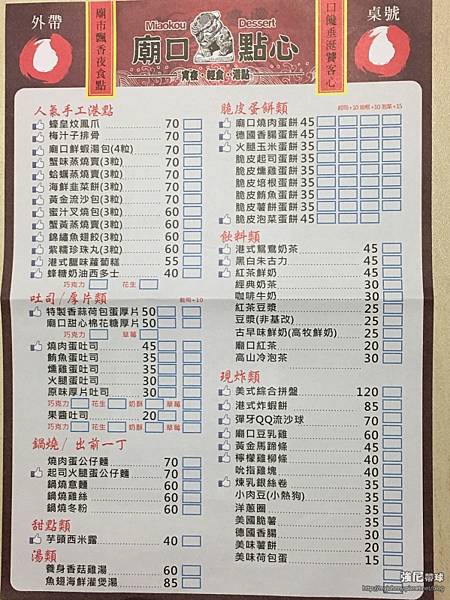 外帶
廟市飄香夜食點
Miaokou Dessert
廟口點心
宵夜·輕食·港點
口饞垂涎饕客心
桌號
人氣手工港點
蠔皇炆鳳爪 70
梅汁子排骨 70
廟口鮮蝦湯包(4粒) 70
蟹味蒸燒賣(3粒) 70
蛤蠣蒸燒賣(3粒) 70
海鮮韭菜餅(3粒) 70
黃金流沙包(3粒) 70
蜜汁叉燒包(3粒) 60
蟹黃蒸燒賣(3粒) 60
錦繡魚翅餃(3粒) 60
紫糯珍珠丸(3粒) 60
港式臘味蘿蔔糕 55
蜂糖奶油西多士 40
巧克力 花生
吐司/厚片類 起司+10
特製香蒜荷包蛋厚片 50
廟口甜心棉花糖厚片 50
巧克力 草莓
燒肉蛋吐司 45
鮪魚蛋吐司 45
燻雞蛋吐司 35
火腿蛋吐司 30
原味厚片吐司 35
巧克力 花生 奶酥 草莓
果醬吐司 20
巧克力 花生 奶酥 草莓
鍋燒/出前一丁
燒肉蛋公仔麵 70
起司火腿蛋公仔麵 70
鍋燒意麵 60
鍋燒雞絲 60
鍋燒冬粉 60
甜點類
芋頭西米露 40
湯類
養身香菇雞湯 60
魚翅海鮮灌煲湯 85
脆皮蛋餅類
廟口燒肉蛋餅 45
德國香腸蛋餅 45
火腿玉米蛋餅 45
脆皮起司蛋餅 35
脆皮燻雞蛋餅 35
脆皮培根蛋餅 35
脆皮鮪魚蛋餅 35
脆皮薯餅蛋餅 35
脆皮泡菜蛋餅 45
飲料類
港式鴛鴦奶茶 45
黑白朱古力 45
紅茶鮮奶 45
經典奶茶 30
咖啡牛奶 30
紅茶豆漿 25
豆漿(非基改) 25
古早味鮮奶(高牧鮮奶) 25
廟口紅茶 20
高山冷泡茶 30
現炸類
美式綜合拼盤 120
港式炸蝦餅 85
彈牙QQ流沙球 70
廟口豆乳雞 60
黃金馬蹄條 45
檸檬雞柳條 40
吮指雞塊 40
煉乳銀絲卷 35
小肉豆(小熱狗) 35
洋蔥圈 35
美國脆薯 35
德國香腸 30
美味薯餅 20
美味荷包蛋 15
強尼帶球